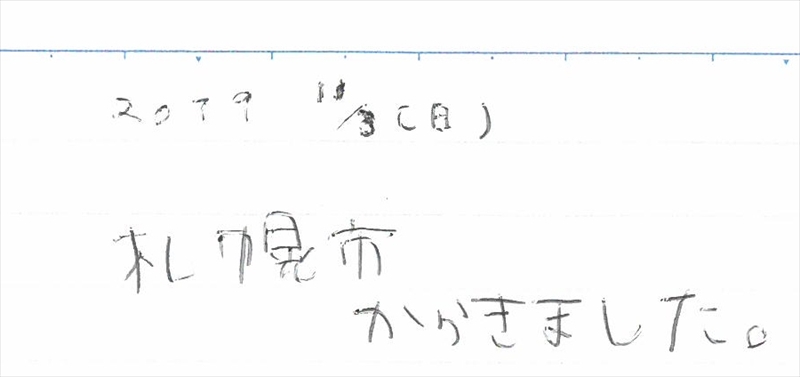 2019 11/3(日)
札幌市
からきました。